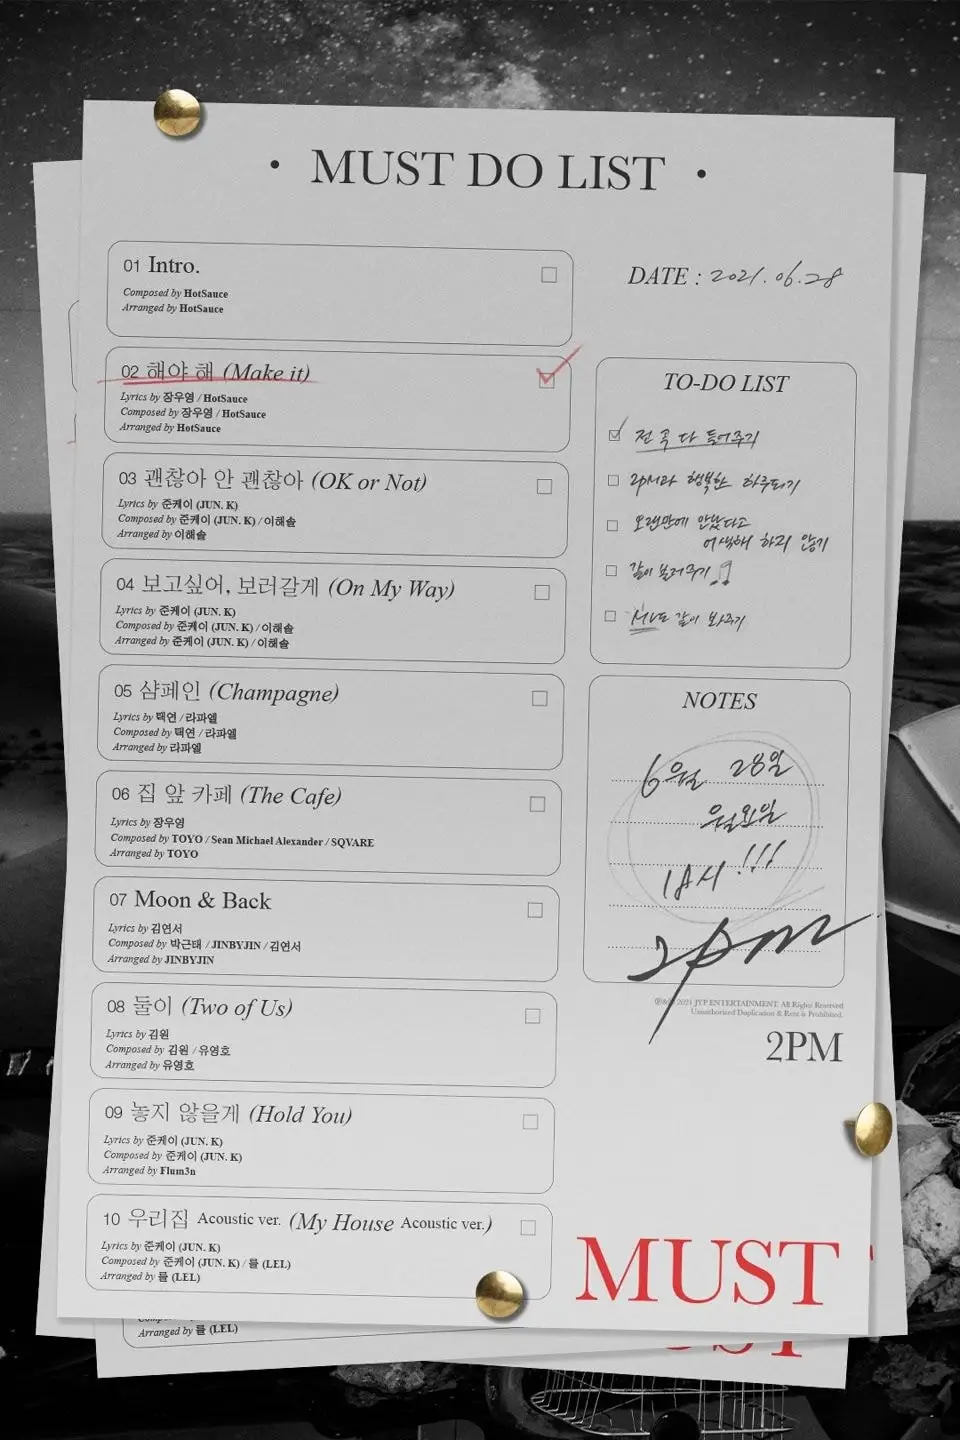 • MUST DO LIST •
01 Intro.
Composed by HotSauce
Arranged by HotSauce
02 해야 해 (Make it)
Lyrics by 장우영 / HotSauce
Composed by 장우영 / HotSauce
Arranged by HotSauce
03 괜찮아 안 괜찮아 (OK or Not)
Lyrics by 준케이 (JUN. K)
Composed by 준케이 (JUN. K) / 이해솔
Arranged by 이해솔
04 보고싶어, 보러갈게 (On My Way)
Lyrics by 준케이 (JUN. K)
Composed by 준케이 (JUN. K) / 이해솔
Arranged by 준케이 (JUN. K) / 이해솔
05 샴페인 (Champagne)
Lyrics by 택연 / 라파엘
Composed by 택연 / 라파엘
Arranged by 라파엘
06 집 앞 카페 (The Cafe)
Lyrics by 장우영
Composed by TOYO / Sean Michael Alexander / SQVARE
Arranged by TOYO
07 Moon & Back
Lyrics by 김연서
Composed by 박근태 / JINBYJIN / 김연서
Arranged by JINBYJIN
08 둘이 (Two of Us)
Lyrics by 김원
Composed by 김원 / 유영호
Arranged by 유영호
09 놓지 않을게 (Hold You)
Lyrics by 준케이 (JUN. K)
Composed by 준케이 (JUN. K)
Arranged by Flum3n
10 우리집 Acoustic ver. (My House Acoustic ver.)
Lyrics by 준케이 (JUN. K)
Composed by 준케이 (JUN. K) / 를 (LEL)
Arranged by 를 (LEL)
Arranged by 를 (LEL)
DATE : 2021.06.28
TO-DO LIST
전 곡 다 들어주기
2PM과 행복한 하루되기
오랜만에 만났다고
어색해 하지 않기
같이 불러주기
MV도 같이 봐주기
NOTES
6월 28일
월요일
!!!
2pm
℗&© 2021 JYP ENTERTAINMENT. All Rights Reserved
Unauthorized Duplication & Rent is Prohibited.
2PM
MUST